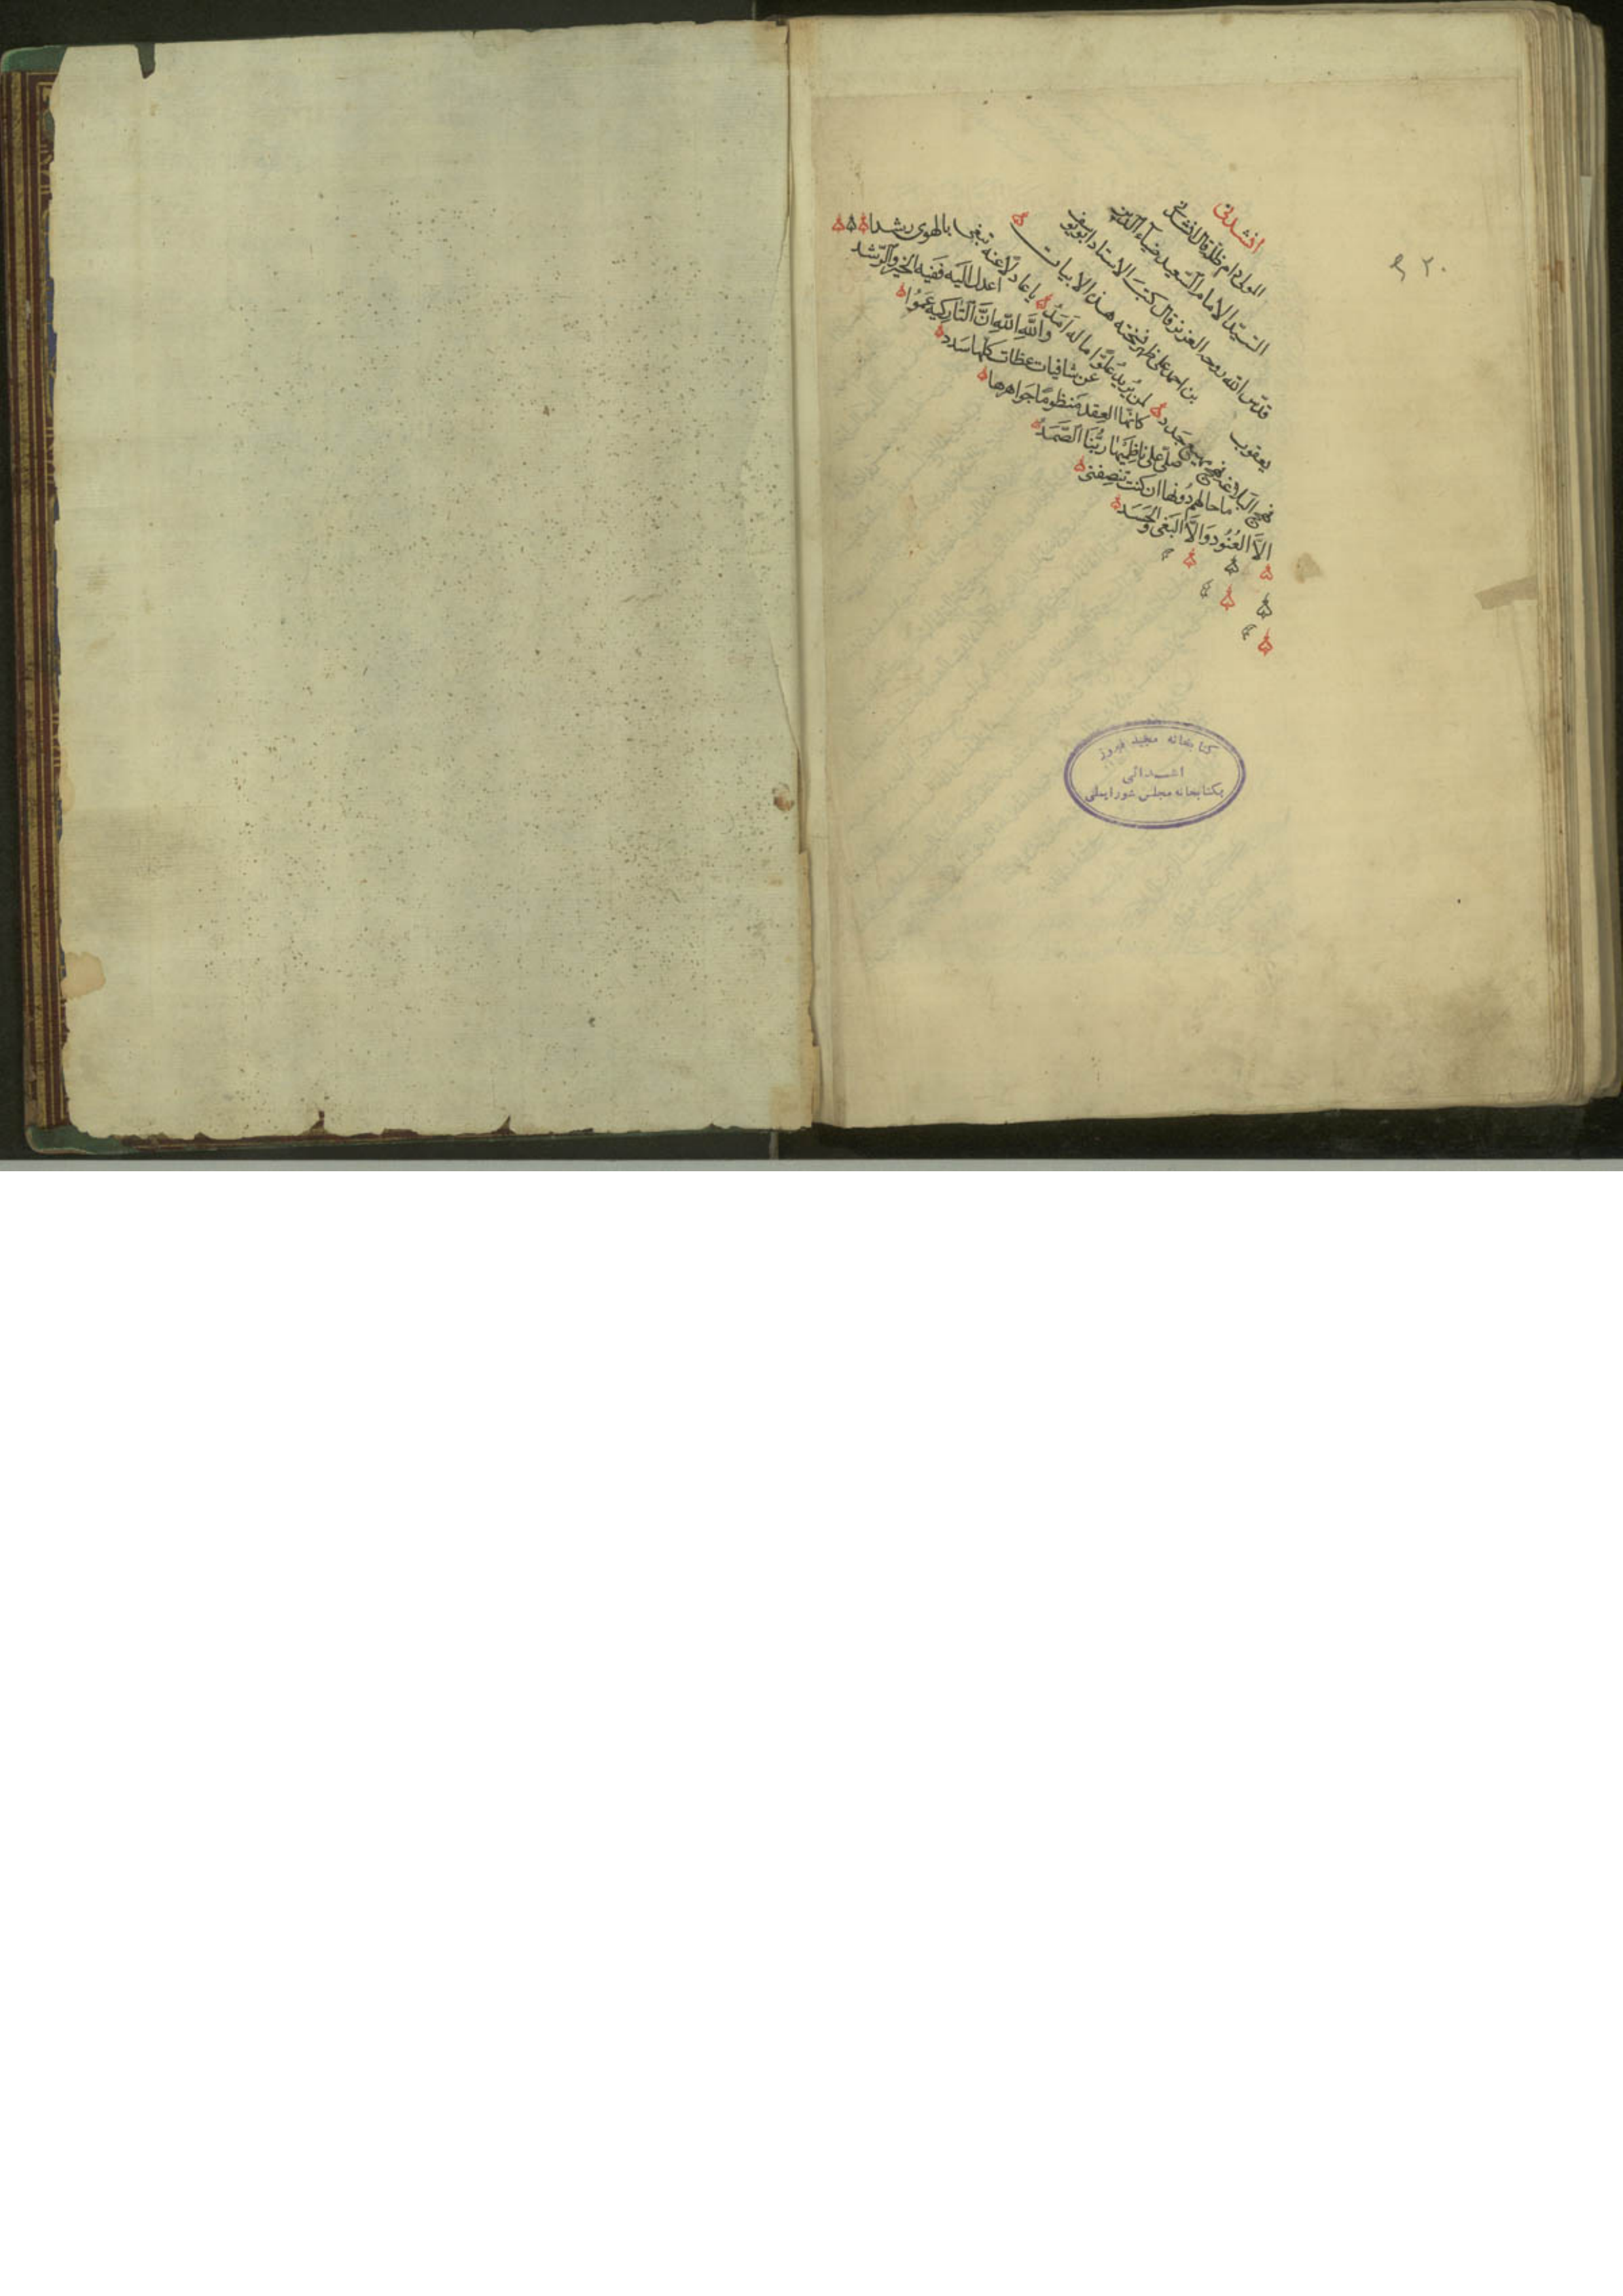 انشدنی
المولی دام ظله قال انشدنی
السیّد الامام السّعید ضیاء الدین
قدّس الله روحه العزیز قال کتب الاستاد ابو یوسف
یعقوب بن احمد علی ظهر نسخته هذه الابیات
نهج البلاغة نهج مهیع جدد
لمن یُرید عُلوًّا ما له اَمَدُ
یا عادلًا عنه تبغی بالهوی رشدا
اعدل الیه ففیه الخیر والرّشد
والله والله انّ التّارکیه عَمُوا
عن شافیات عظات کلها سَدد
کانّها العِقد مَنظومًا جَواهرها
صلّی علی ناظِمیها ربُّنَا الصَّمَدُ
ما حالهم دُونها ان کنت تنصِفنی
الّا العُنُود وَالّا البَغی والحَسَد
۲۰
کتابخانه مجید فیروز
اهدائی
بکتابخانه مجلس شورایملی